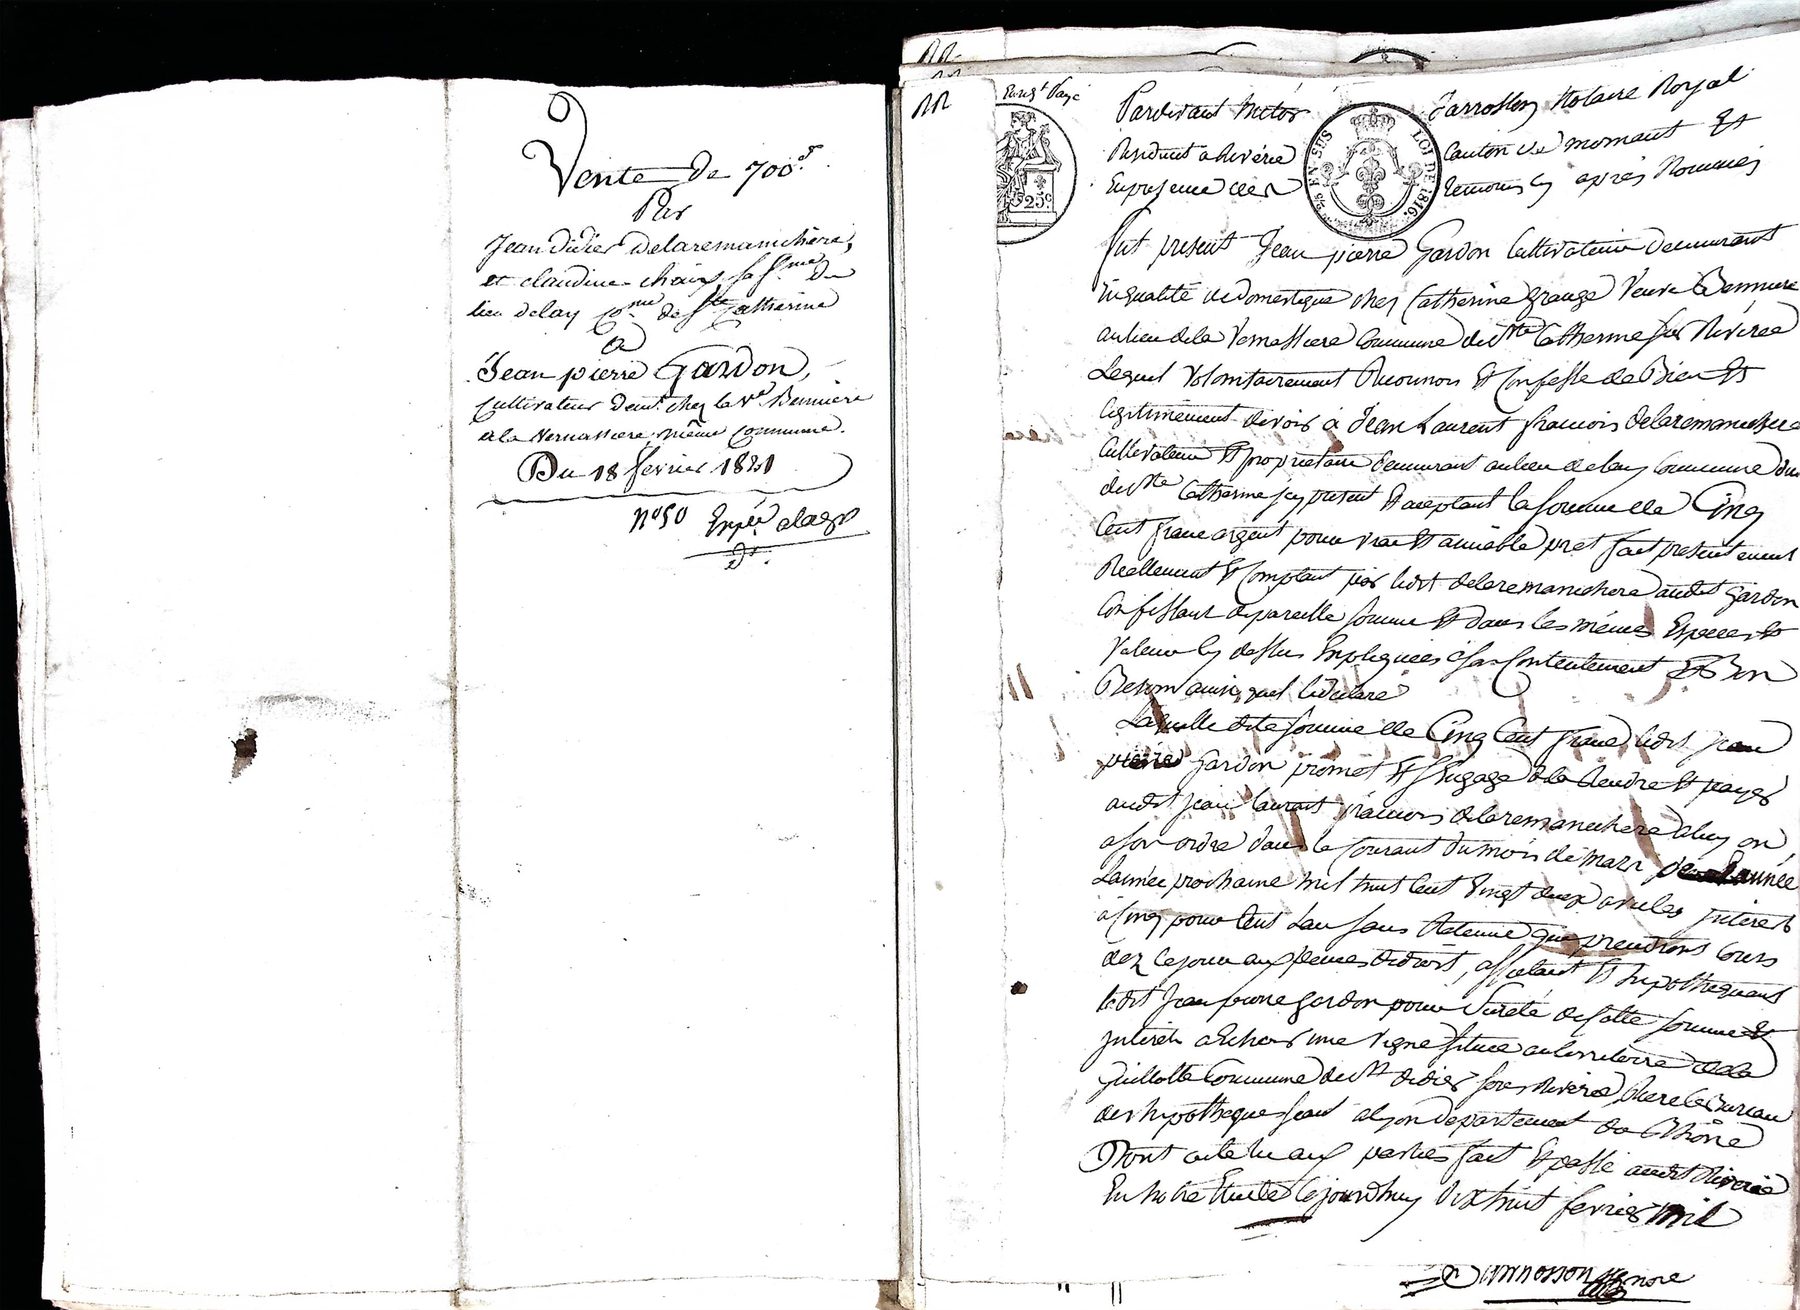 Vente de 700f.
Par
Jean Didier Delaremanichere,
et claudine chaix sa fme du
lieu delay Cne de Ste Catherine
a
Jean pierre Gardon,
Cultivateur demt. chez la ve Bernniere
a la Vernassiere, même Commune.
Du 18 fevrier 1821
No 50
Enregt Payé
25c
25 EN SUS LOI DE 1816.
Pardevant Jarrosson Notaire Royal
Residant a Riverie Canton de mornant Et
En presence des temoins cy après Nommés
fut present Jean pierre Gardon Cultivateur demeurant
En qualité de domestique chez Catherine Grange Veuve Bernniere
au lieu de la Vernassiere Commune de Ste Catherine sur Riverie
Lequel volontairement Reconnois Et Confesse de Bien Et
legitimement devoir à Jean Laurent francois delaremanichere
Cultivateur Et proprietaire demeurant au lieu delay Commune du
dit Ste Catherine icy present Et acceptant la somme de Cinq
Cent franc argent pour vrai Et amiable pret fait presentement
Reellement Et Comptant par ledit delaremanichere audit Gardon
Confessant de pareille somme Et dans les mêmes Especes Et
Valeur cy dessus Expliquées a son Contentement Et Bon
Besoin ainsi quil le declare
Laquelle dite somme de Cinq Cent franc ledit Jean
pierre Gardon promet Et s'Engage de la Rendre Et payer
audit Jean Laurent francois delaremanichere a luy ou
a son ordre dans le Courant du mois de mars
L'année prochaine mil huit Cent Vingt deux avec les interets
à Cinq pour Cent L'an sans Retenue que prendront Cours
dez Cejour aux peines de droit, affectant Et hypothequant
ledit Jean pierre Gardon pour Sureté de cette somme Et
interets a Echoir une Vigne situee au territoire de la
Guillotte Commune de St didier sous Riverie, Riere le Bureau
des hypotheques seant a Lyon departement du Rhône
Dont acte lu aux parties fait Et passé audit Riverie
En notre Etude Cejourdhuy dix huit fevrier mil
Jarrosson nore